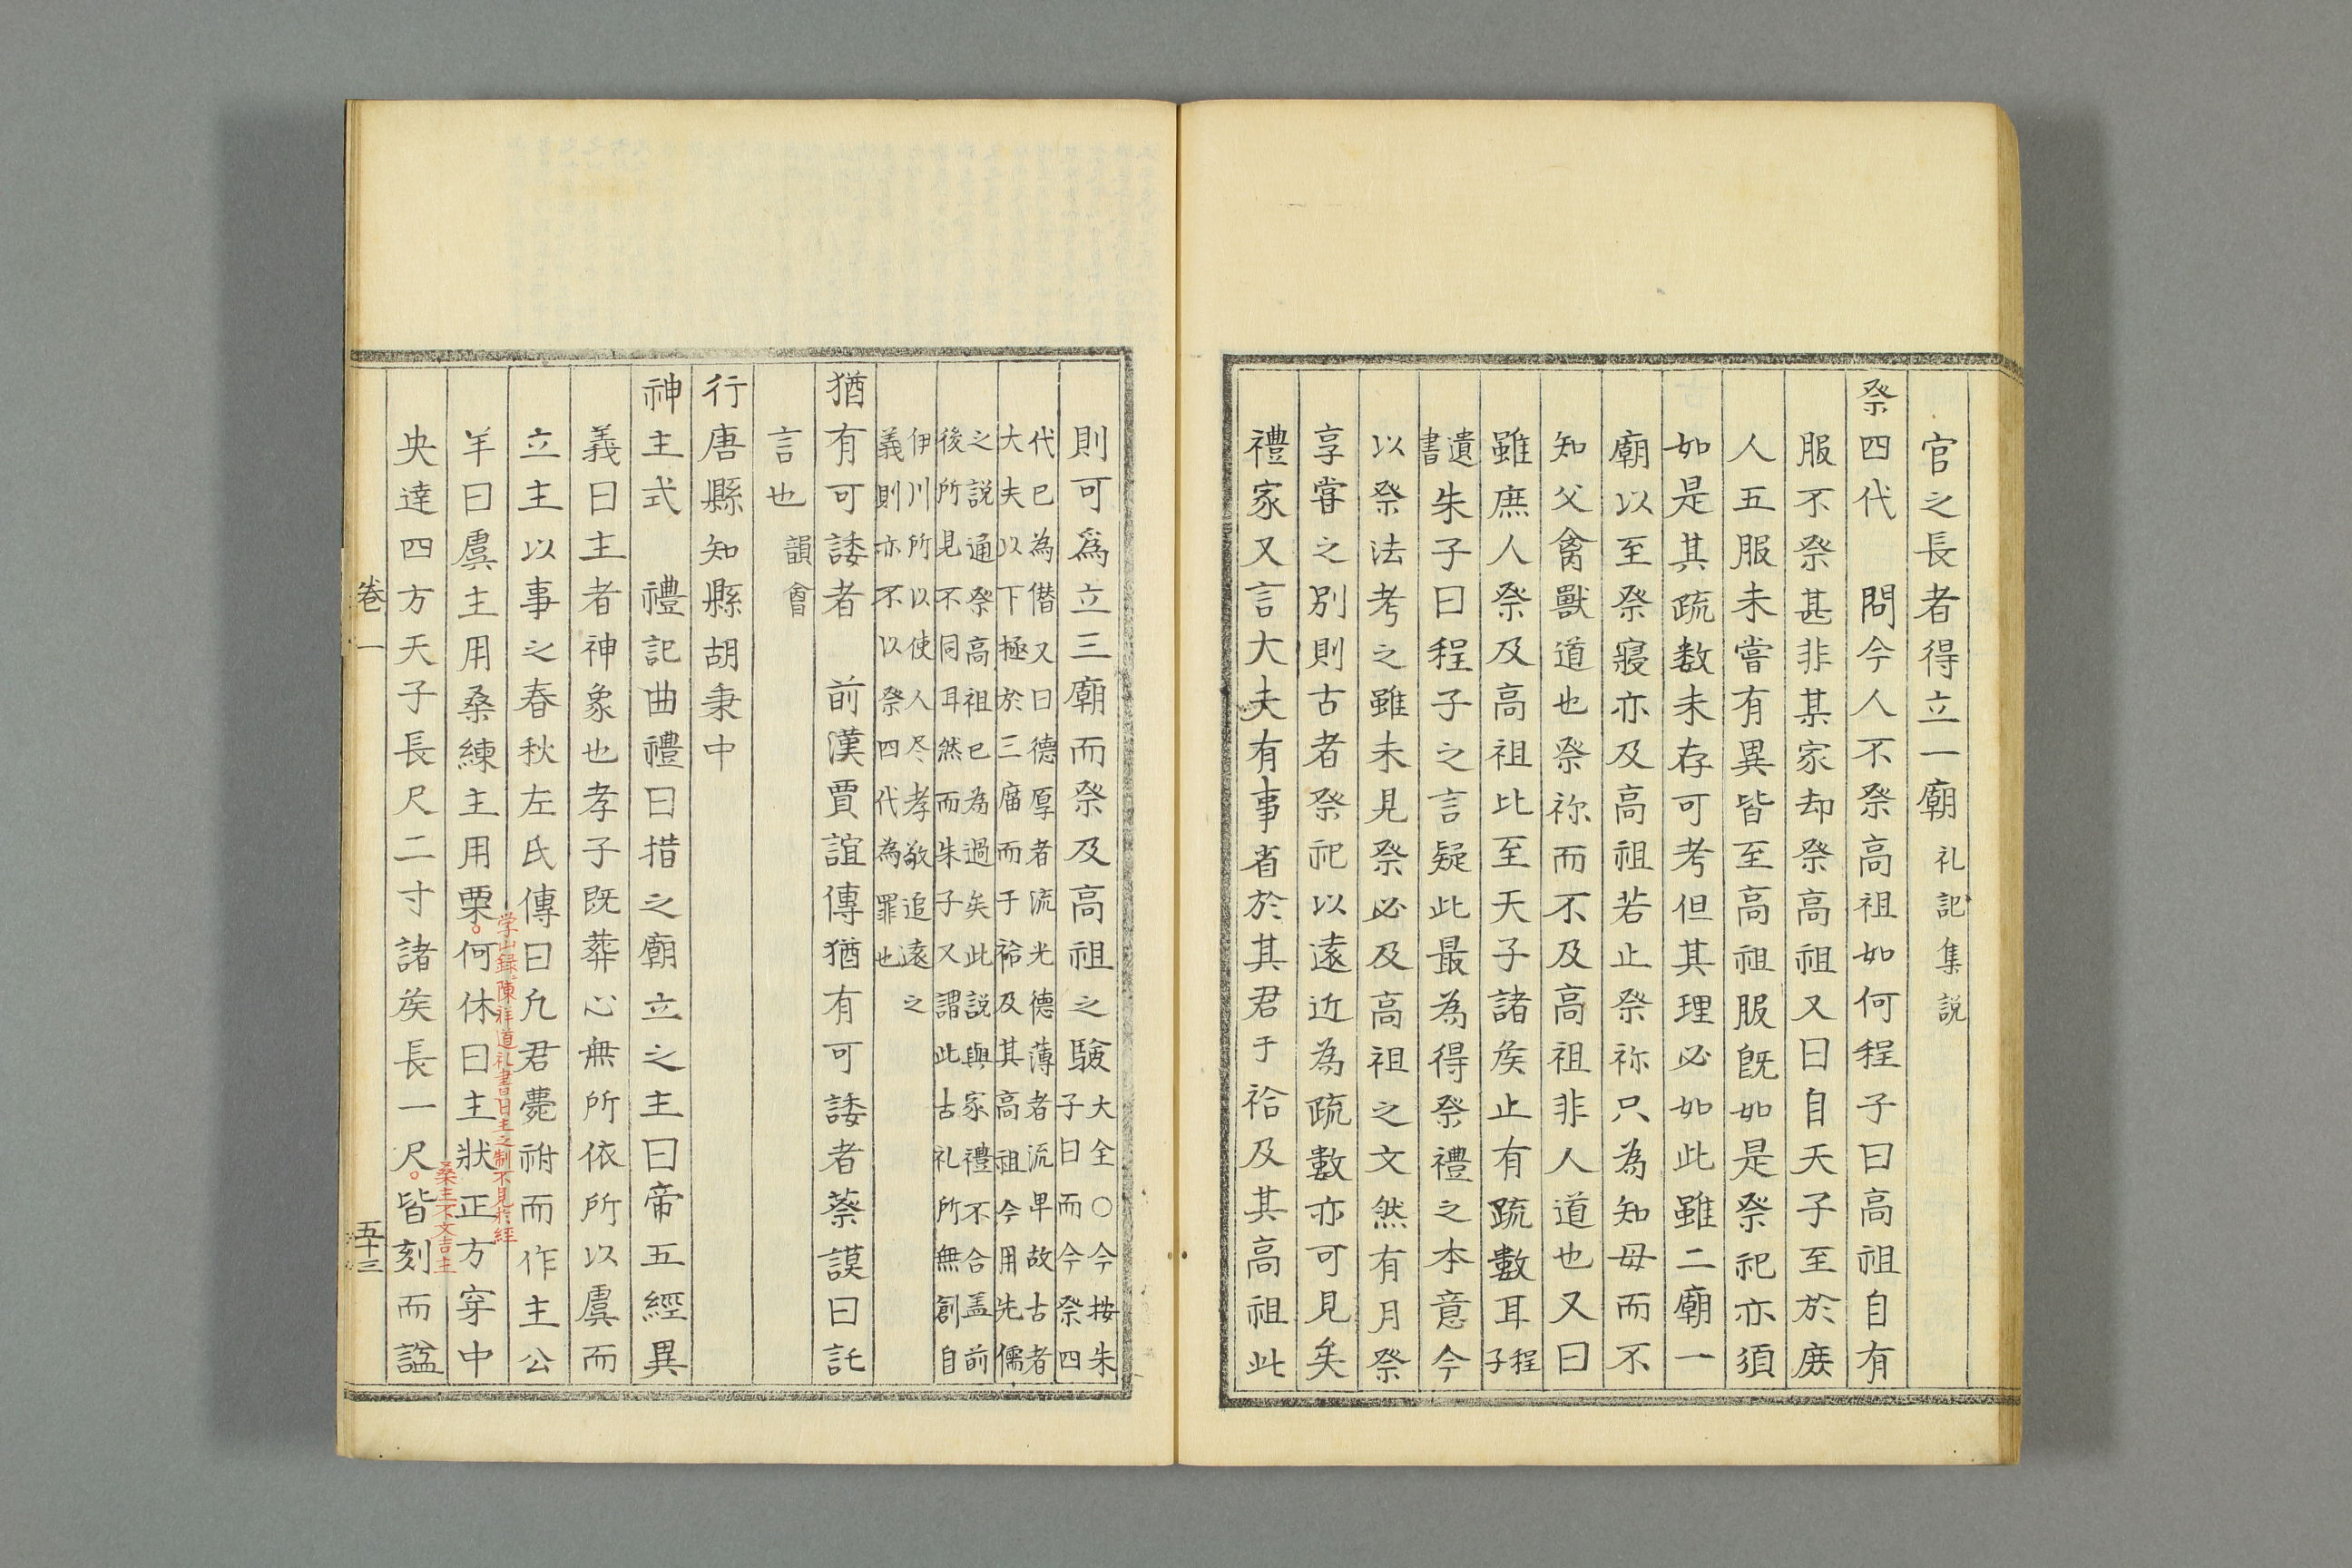 官之長者得立一廟礼記集説
祭四代　問今人不祭高祖如何程子曰高祖自有
服不祭甚非某家却祭高祖又曰自天子至於庻
人五服未嘗有異皆至高祖服旣如是祭祀亦須
如是其疏数未存可考但其理必如此雖二廟一
廟以至祭寢亦及高祖若止祭祢只為知母而不
知父禽獸道也祭祢而不及高祖非人道也又曰
雖庶人祭及高祖比至天子諸矦止有疏數耳程子
遺書朱子曰程子之言疑此最為得祭禮之本意今
以祭法考之雖未見祭必及高祖之文然有月祭
享甞之別則古者祭祀以遠近為疏數亦可見矣
禮家又言大夫有事省於其君于祫及其高祖此
則可爲立三廟而祭及高祖之驗大全○今按朱
子曰而今祭四
代已為僭又曰德厚者流光德薄者流卑故古者
大夫以下極於三廟而于祫及其高祖今用先儒
之説通祭高祖已為過矣此説與家禮不合盖前
後所見不同耳然而朱子又謂此古礼所無創自
伊川所以使人尽孝敬追遠之
義則亦不以祭四代為罪也
猶有可諉者　前漢賈誼傳猶有可諉者蔡謨曰託
言也韻會
行唐縣知縣胡秉中
神主式　禮記曲禮曰措之廟立之主曰帝五經異
義曰主者神象也孝子既葬心無所依所以虞而
立主以事之春秋左氏傳曰凢君薨祔而作主公
学山録陳祥道礼書曰主之制不見於経
羊曰虞主用桑練主用栗何休曰主状正方穿中
桑主不文吉主
央達四方天子長尺二寸諸矦長一尺皆刻而諡
卷一
五十三